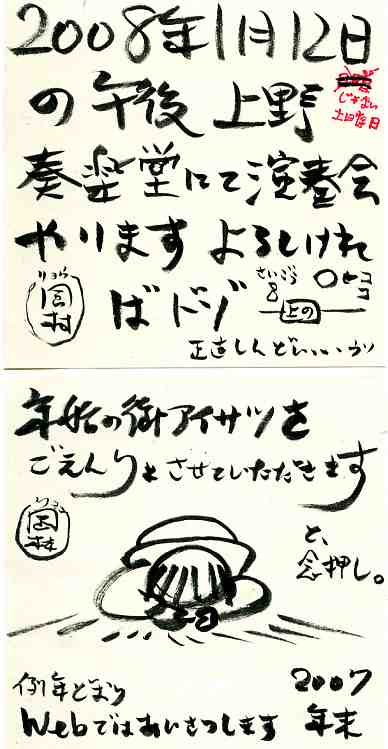 2008年1月12日
の午後 上野
じゃない
土曜日
奏楽堂にて演奏会
やります よろしければ
ば ドゾ
さいごう
上の
ココ
正直しんどい
年始の御アイサツを
ごえんりょさせていただきます
岡村
と、
念押し。
例年どおり
Webではあいさつします
2007
年末